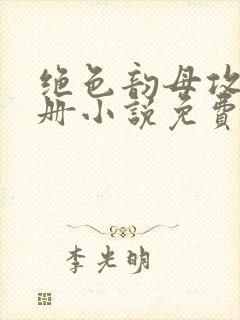 绝色韵母攻
册小说免费
李光明